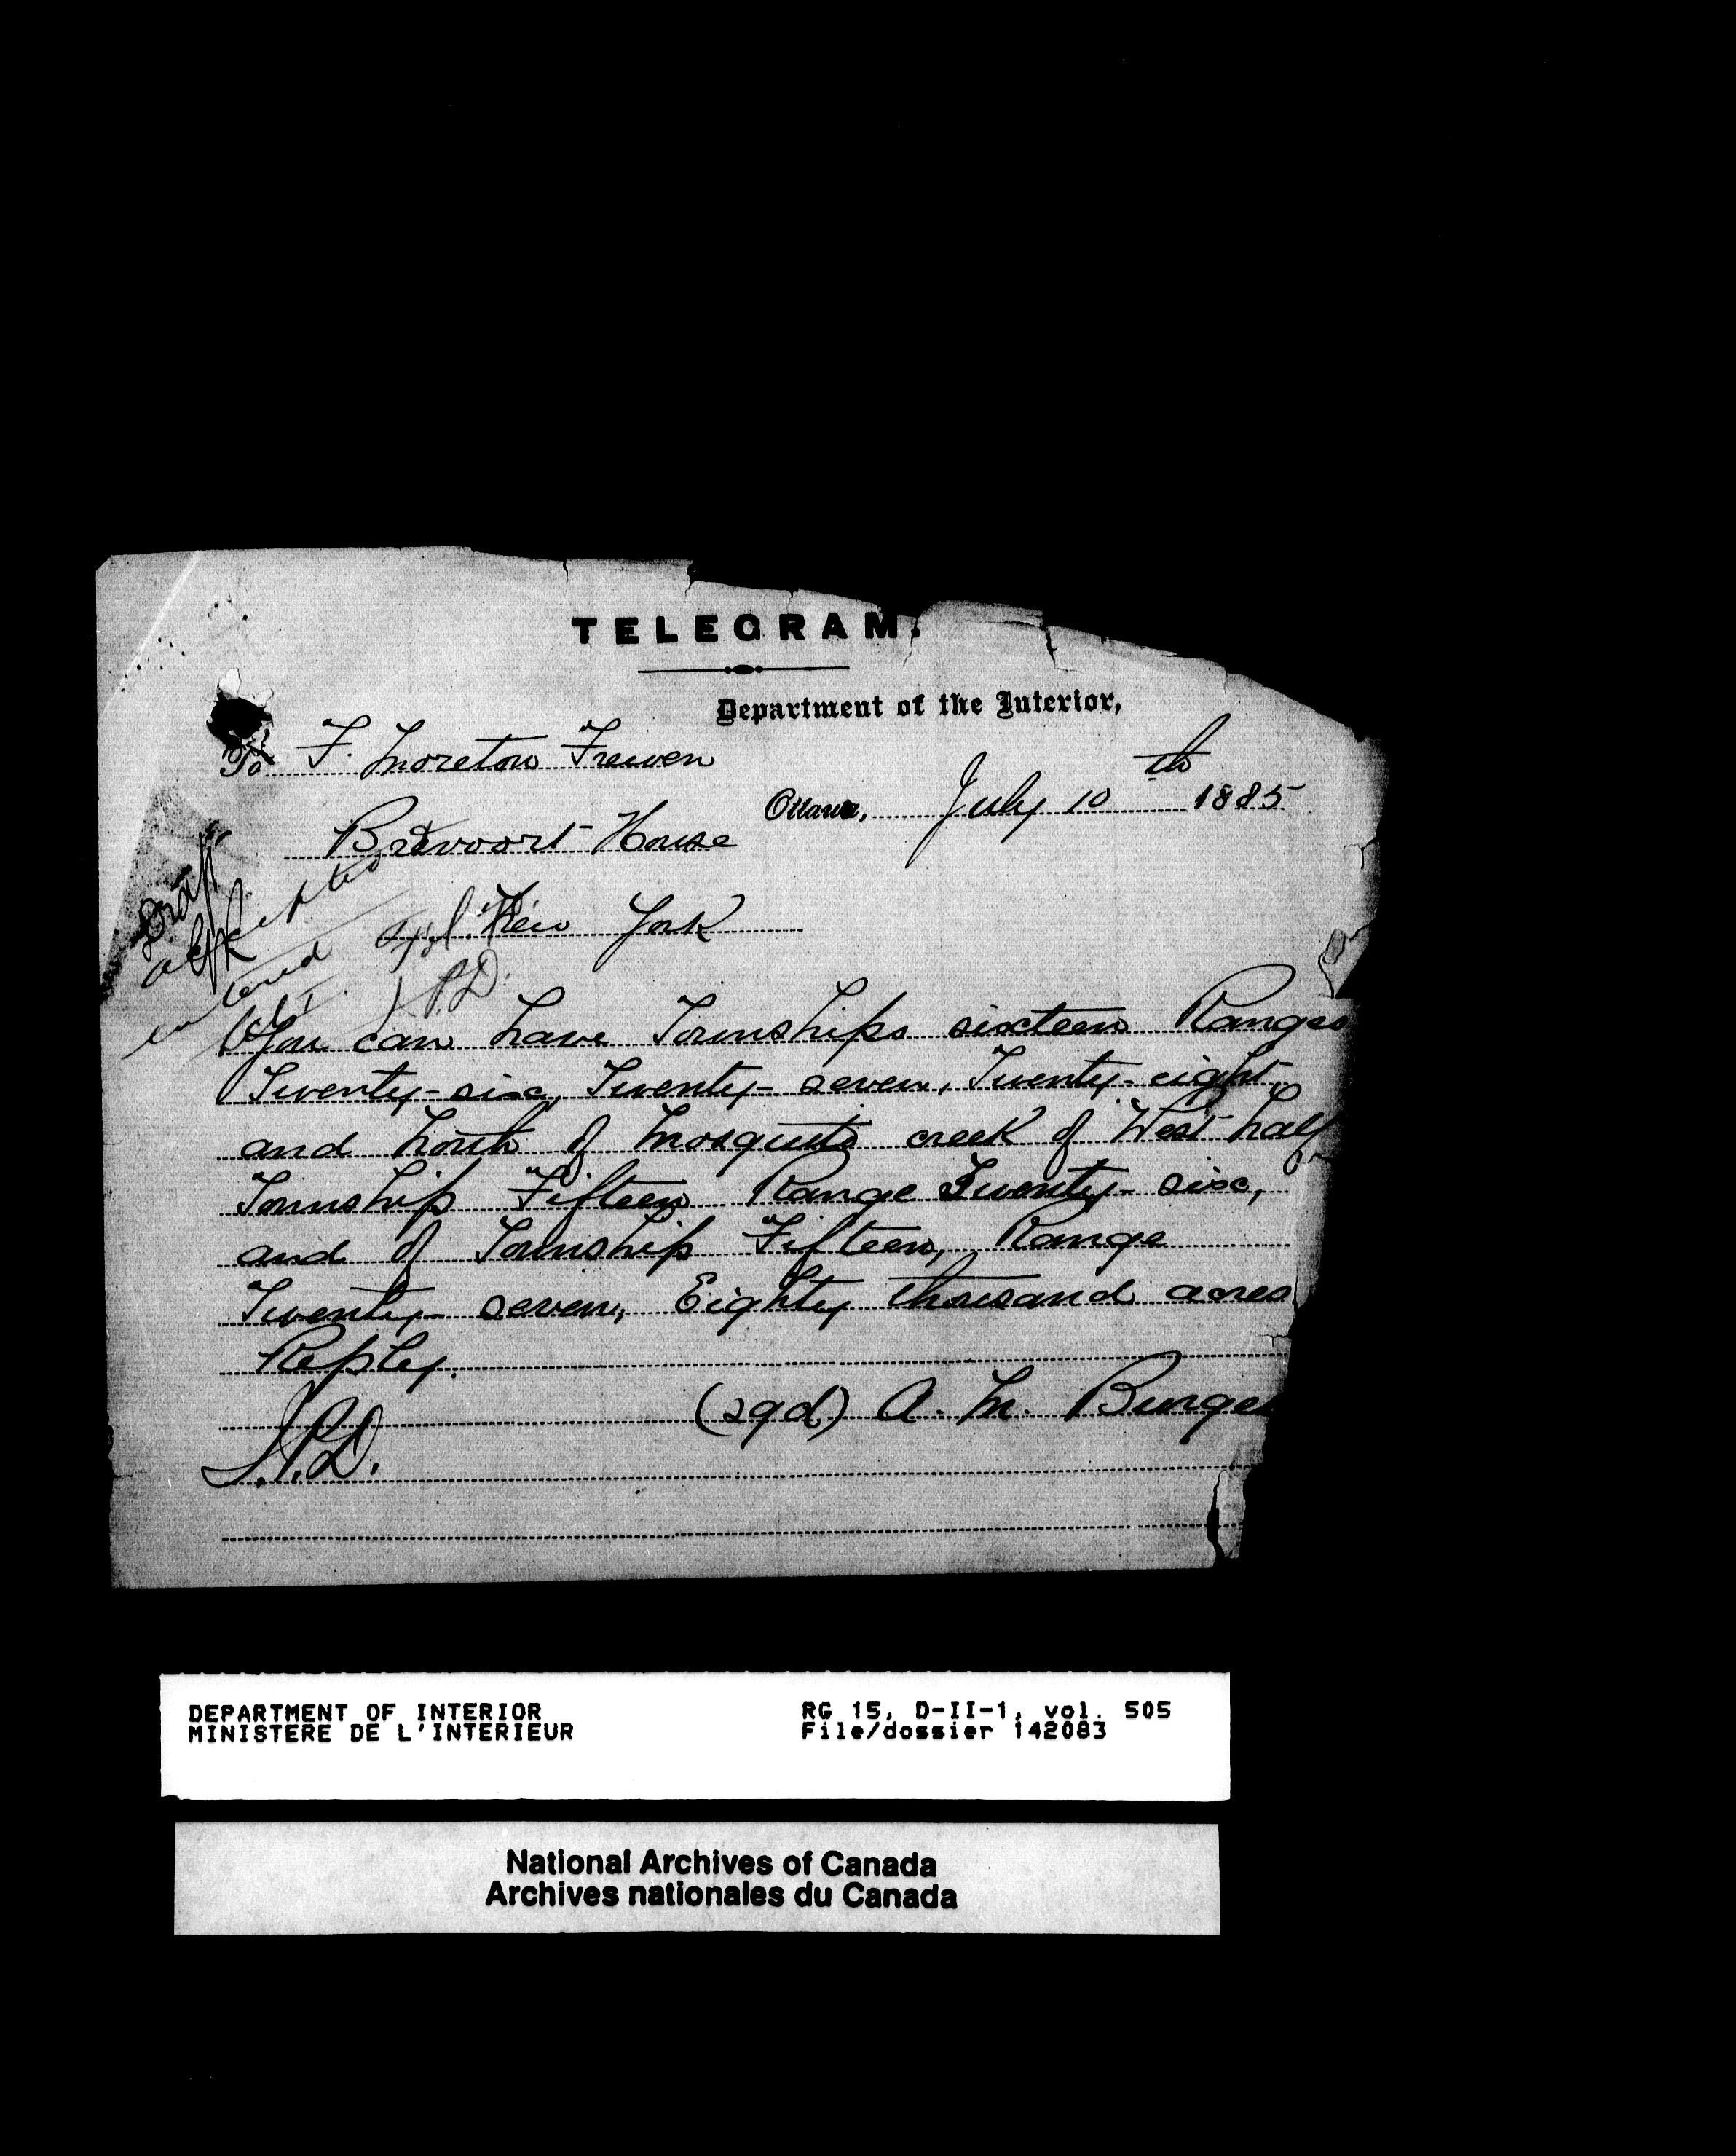 TELEGRAM.
Department of the Interior,
To F. Moreton Frewen
Ottawa, July 10th 1885
Brevoort House
New York
You can have Townships sixteen Ranges
Twenty-six, Twenty-seven, Twenty-eight,
and North of Mosquito creek of West half
Township Fifteen Range Twenty-six,
and of Township Fifteen, Range
Twenty-seven, Eighty thousand acres
Reply.
(sgd) A. M. Burges
Draft
entered
DEPARTMENT OF INTERIOR
MINISTERE DE L'INTERIEUR
RG 15, D-II-1, vol. 505
File/dossier 142083
National Archives of Canada
Archives nationales du Canada